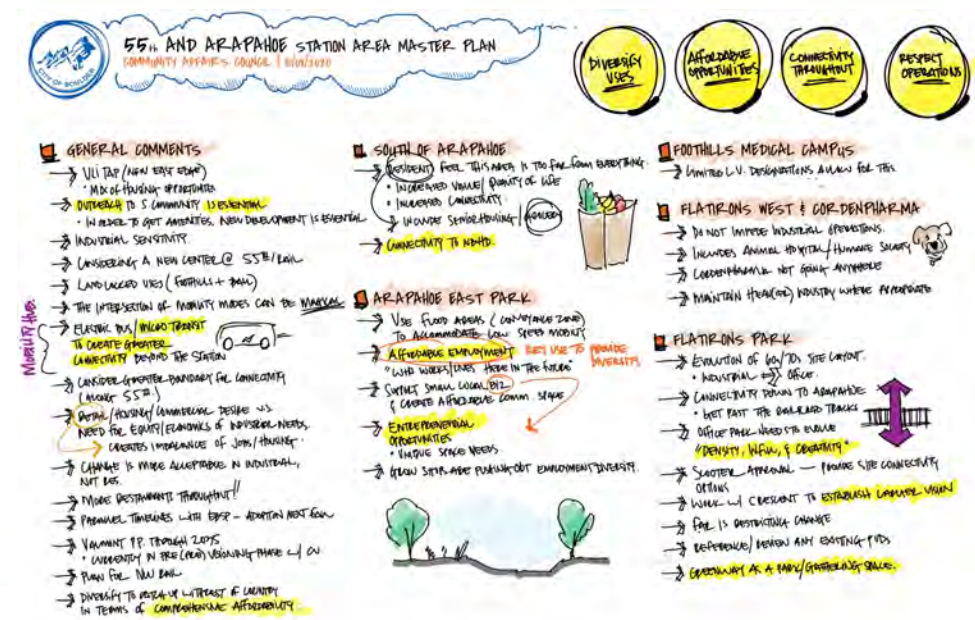 55th AND ARAPAHOE STATION AREA MASTER PLAN
COMMUNITY AFFAIRS COUNCIL |
CITY OF BOULDER
DIVERSIFY USES
AFFORDABLE OPPORTUNITIES
CONNECTIVITY THROUGHOUT
RESPECT OPERATIONS
GENERAL COMMENTS
VLI TAP (NEW EAST EDGE)
• MIX OF HOUSING OPPORTUNITIES
OUTREACH TO S. COMMUNITY IS ESSENTIAL
• IN ORDER TO GET AMENITIES, NEW DEVELOPMENT IS ESSENTIAL
INDUSTRIAL SENSITIVITY
CONSIDERING A NEW CENTER @ 55th/RAIL
LAND LOCKED USES (FOOTHILLS + BALL)
THE INTERSECTION OF MOBILITY MODES CAN BE MAGICAL
MOBILITY HUBS.
ELECTRIC BUS/MICRO TRANSIT
TO CREATE GREATER
CONNECTIVITY BEYOND THE STATION
CONSIDER GREATER BOUNDARY FOR CONNECTIVITY
(ALONG 55th.)
RETAIL/HOUSING/COMMERCIAL DESIRE V.S.
NEED FOR EQUITY/ECONOMICS OF INDUSTRIAL NEEDS.
CREATES IMBALANCE OF JOBS/HOUSING.
CHANGE IS MORE ACCEPTABLE IN INDUSTRIAL,
NOT RES.
MORE RESTAURANTS THROUGHOUT!!
PARALLEL TIMELINES WITH EBSP - ADOPTION NEXT
VALMONT P.P. THROUGH 20
• CURRENTLY IN PRE (PRE) VISIONING PHASE W/ CU
PLAN FOR NW RAIL
DIVERSIFY TO W/ REST OF COUNTRY
IN TERMS OF COMPREHENSIVE AFFORDABILITY
SOUTH OF ARAPAHOE
RESIDENT FEEL THIS AREA IS TOO FAR FROM EVERYTHING.
• INCREASED VALUE/QUALITY OF LIFE
• INCREASED CONNECTIVITY.
INCLUDE SENIOR HOUSING/GROCERY
CONNECTIVITY TO NBHD.
ARAPAHOE EAST PARK
USE FLOOD AREAS (CONVEYANCE ZONE)
TO ACCOMMODATE LOW SPEED MOBILITY
AFFORDABLE EMPLOYMENT KEY USE TO PROVIDE
DIVERSITY
"WHO WORKS/LIVES HERE IN THE FUTURE"
SUPPORT SMALL LOCAL BIZ
& CREATE AFFORDABLE COMM. SPACE
ENTREPRENEURIAL
OPPORTUNITIES
• UNIQUE SPACE NEEDS.
GROW SHOPS ARE PUSHING OUT EMPLOYMENT DIVERSITY.
FOOTHILLS MEDICAL CAMPUS
LIMITED L.V. DESIGNATIONS ALLOW FOR THIS.
FLATIRONS WEST & CORDENPHARMA
DO NOT IMPEDE INDUSTRIAL OPERATIONS.
INCLUDES ANIMAL HOSPITAL/HUMANE SOCIETY
CORDENPHARMA NOT GOING ANYWHERE
MAINTAIN HEAV(IER) INDUSTRY WHERE APPROPRIATE
FLATIRONS PARK
EVOLUTION OF 60s/70s SITE LAYOUT.
• INDUSTRIAL OFFICE.
CONNECTIVITY DOWN TO ARAPAHOE
• GET PAST THE RAILROAD TRACKS
OFFICE PARK NEEDS TO EVOLVE
"DENSITY, INFILL, & CREATIVITY"
SCOOTER APPROVAL — PROVIDE SITE CONNECTIVITY
OPTIONS
WORK W/ CRESCENT TO ESTABLISH LARGER VISION
FAR IS RESTRICTING CHANGE
REFERENCE/REVIEW ANY EXISTING PUDS
GREENWAY AS A PARK/GATHERING SPACE.